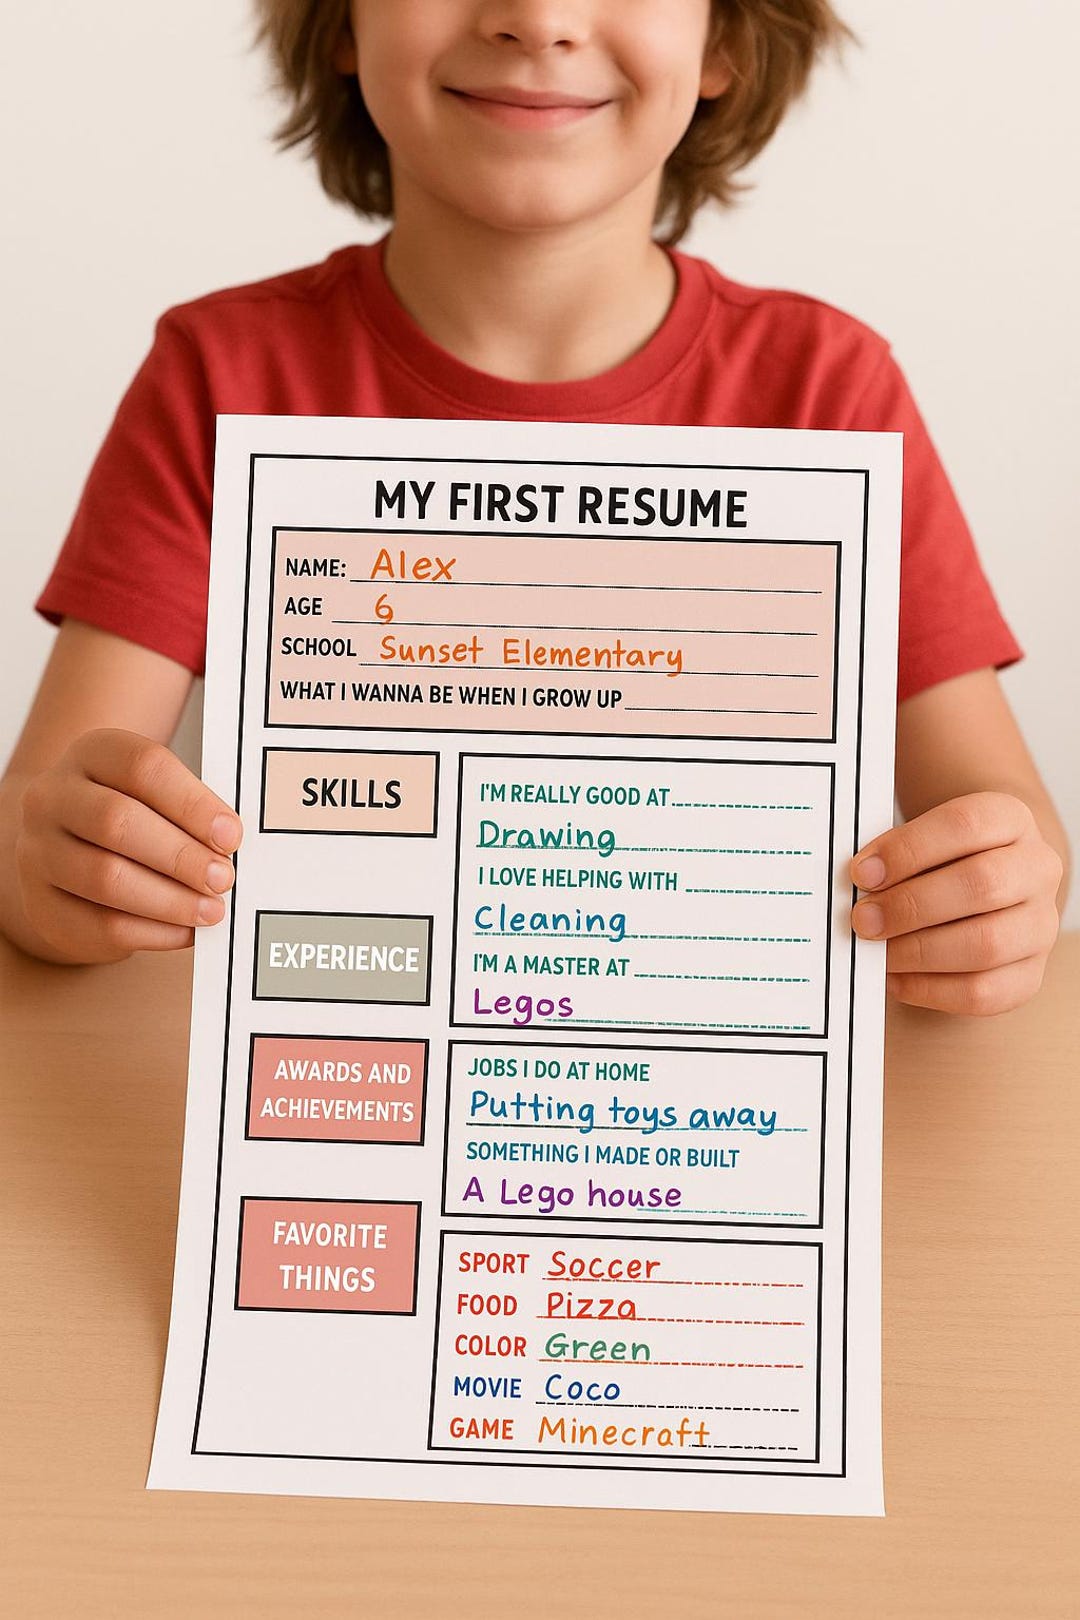 MY FIRST RESUME
NAME: Alex
AGE 6
SCHOOL Sunset Elementary
WHAT I WANNA BE WHEN I GROW UP
SKILLS
I'M REALLY GOOD AT
Drawing
I LOVE HELPING WITH
Cleaning
I'M A MASTER AT
Legos
EXPERIENCE
JOBS I DO AT HOME
Putting toys away
SOMETHING I MADE OR BUILT
A Lego house
AWARDS AND
ACHIEVEMENTS
FAVORITE
THINGS
SPORT Soccer
FOOD Pizza
COLOR Green
MOVIE Coco
GAME Minecraft